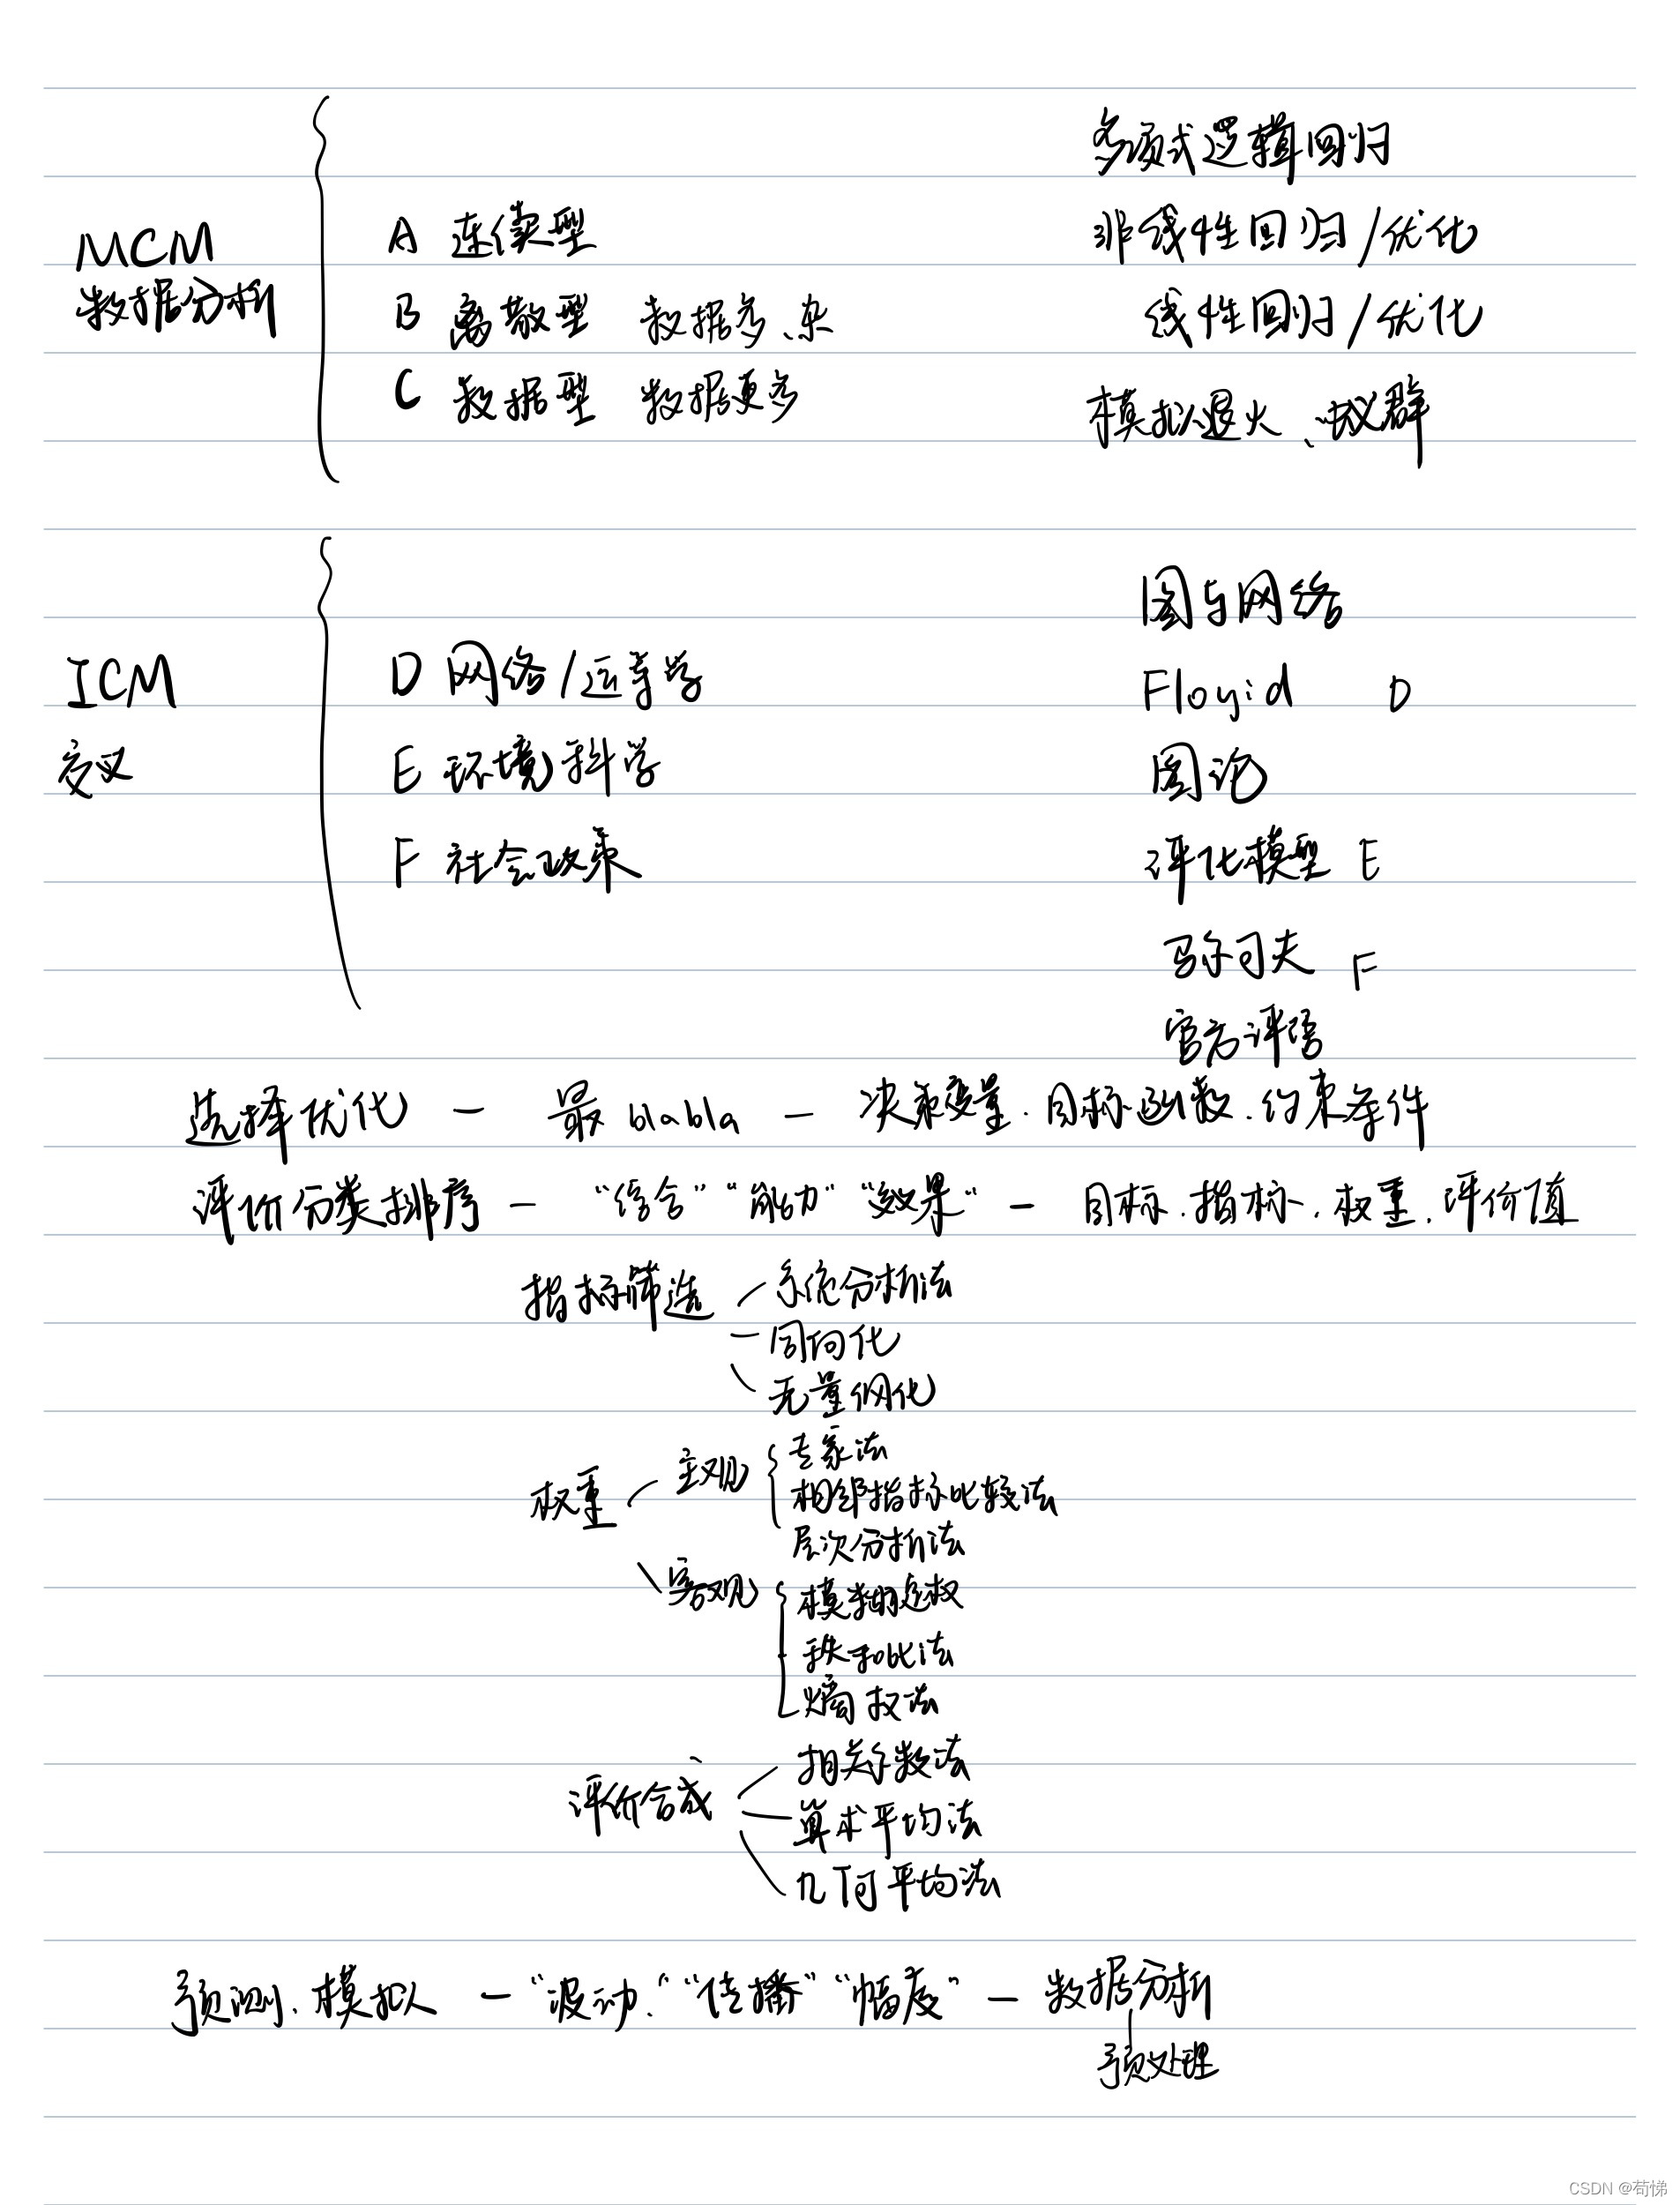 多项式逻辑回归
MCM
数据分析
A 连续型
非线性回归/优化
B 离散型 数据多、杂
线性回归/优化
C 数据型 数据更多
模拟退火、蚁群
ICM
交叉
图与网络
D 网络/运筹学
Floyid D
E 环境科学
图论
F 社会政策
评化模型 E
马尔可夫 F
官方评语
选择优化 — 最 blabla — 决策变量.目标函数.约束条件
评价分类排序 — “综合”“能力”“效果” — 目标.指标.权重.评价值
指标筛选
系统分析法
同向化
无量纲化
权重
主观
专家法
相邻指标比较法
层次分析法
客观
模糊定权
秩和比法
熵权法
评价合成
相关系数法
算术平均法
几何平均法
预测、模拟 — “波动”“传播”“幅度” — 数据分析
预处理
CSDN @苟悌